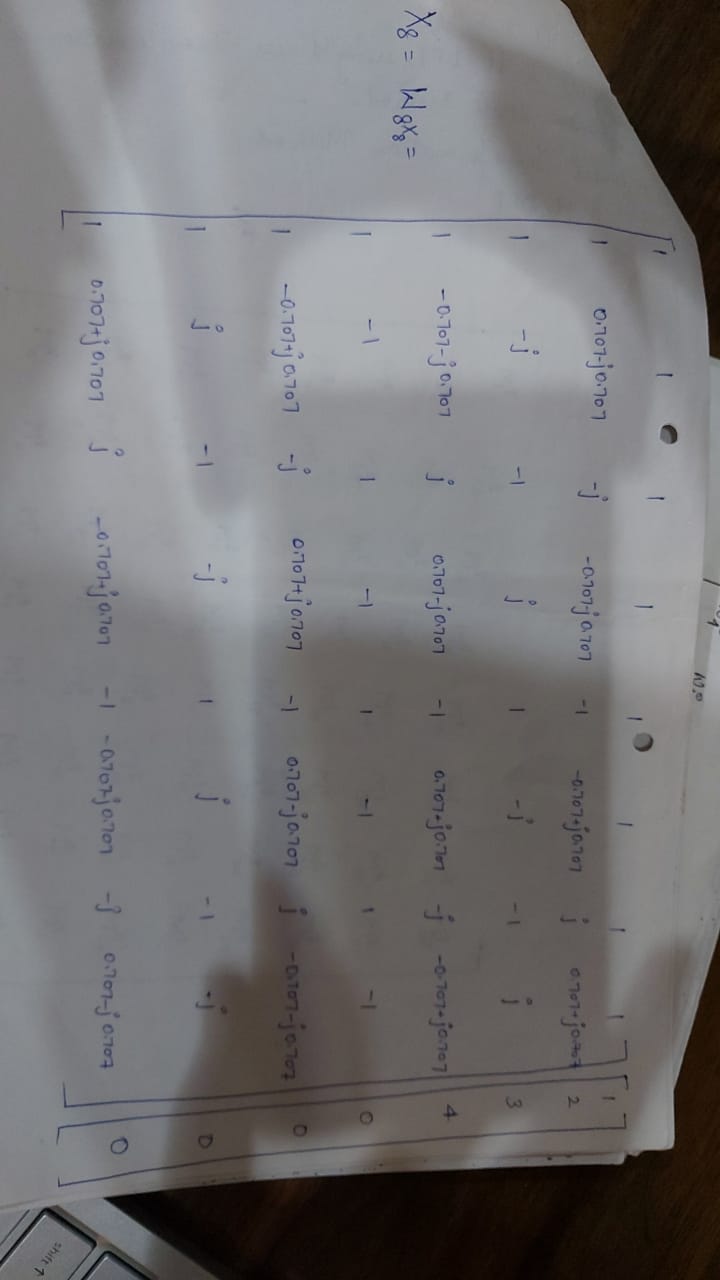 1 1 1 1 1 1 1 1 1
1 0.707-j0.707 -j -0.707-j0.707 -1 -0.707+j0.707 j 0.707+j0.707 2
1 -j -1 j 1 -j -1 j 3
1 -0.707-j0.707 j 0.707-j0.707 -1 0.707+j0.707 -j -0.707+j0.707 4
X8 = W8x8 = 1 -1 1 -1 1 -1 1 -1 0
1 -0.707+j0.707 -j 0.707+j0.707 -1 0.707-j0.707 j -0.707-j0.707 0
1 j -1 -j 1 j -1 -j 0
1 0.707+j0.707 j -0.707+j0.707 -1 -0.707-j0.707 -j 0.707-j0.707 0
shift ↑